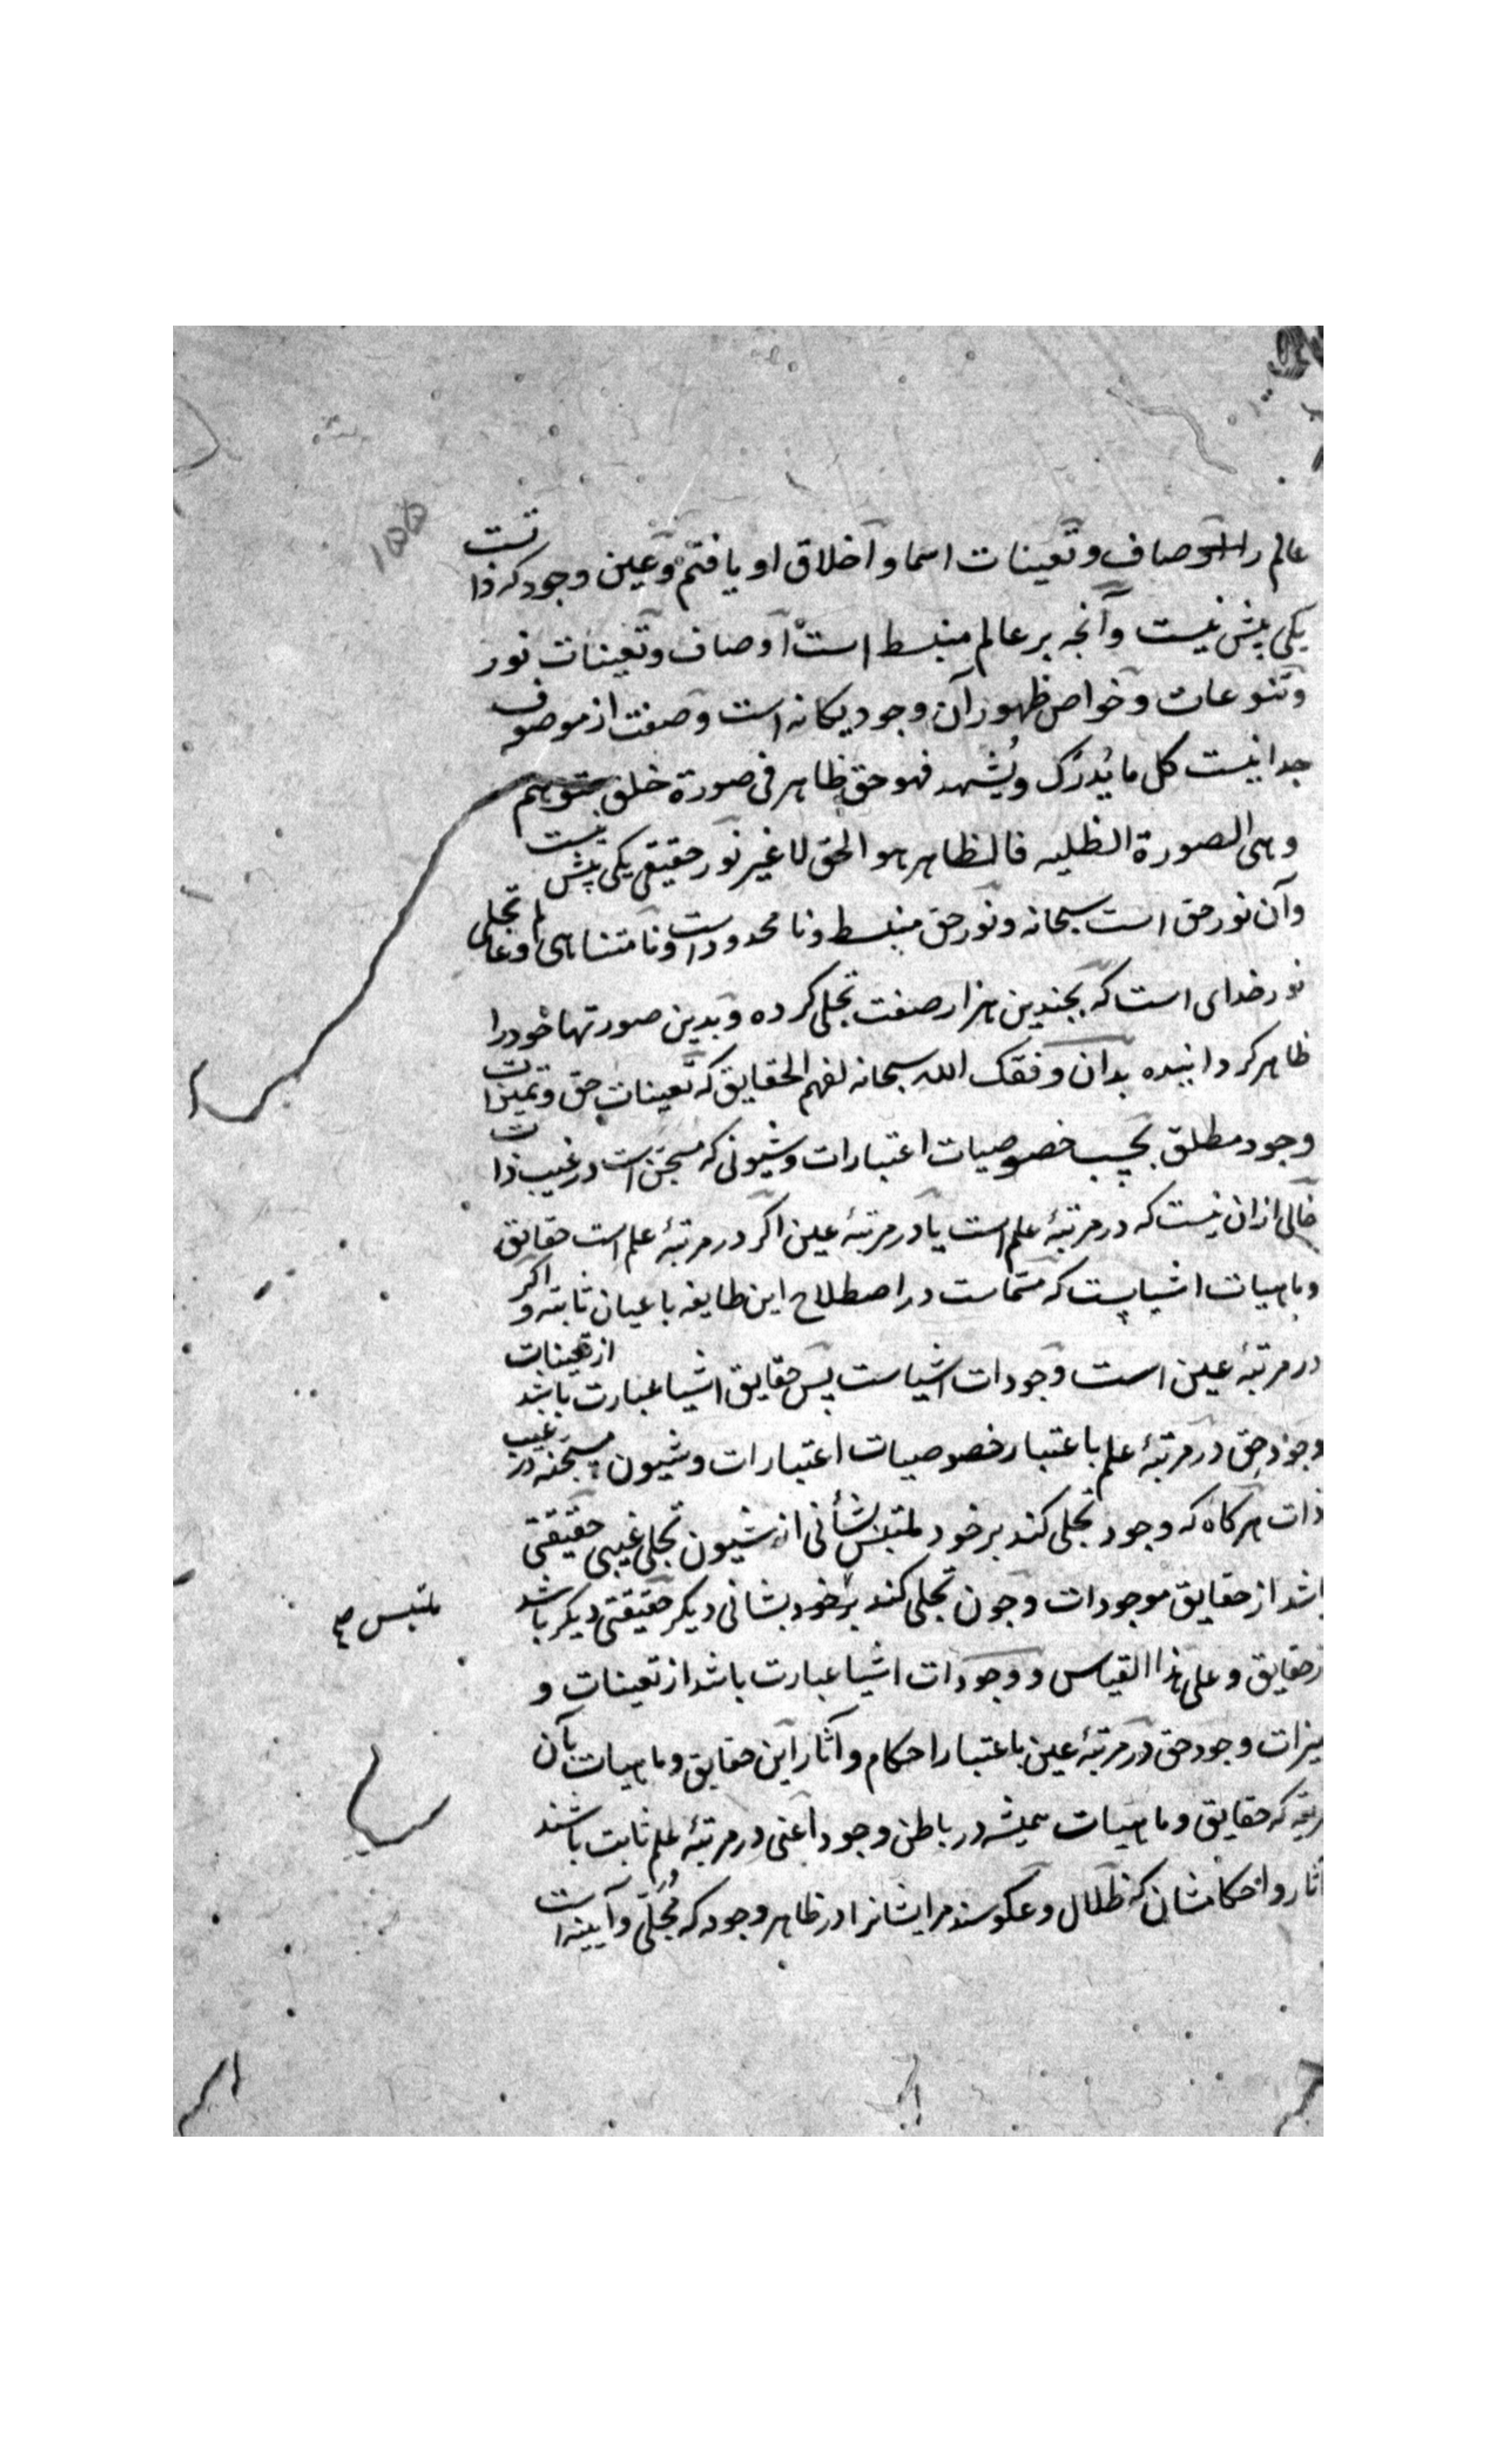 عالم را اوصاف و تعینات اسما و اخلاق او یافتم و عین وجود که ذاتست
یکی بیش نیست و آنجه بر عالم منبسط است اوصاف و تعینات نور
و تنوعات و خواص ظهور آن وجود یکانه است و صفت از موصوف
جدا نیست کل ما یُدرَک و یُشهد فهو حق ظاهر فی صورة خلق متوهم
و هی الصورة الظلیه فالظاهر هو الحق لا غیر نور حقیقی یکی بیش نیست
و آن نور حق است سبحانه و نور حق منبسط و نا محدود است و نا متناهی و عالم تجلی
نور خدای است که بجندین هزار صفت تجلی کرده و بدین صورتها خود را
ظاهر کردانیده بدان وفقک الله سبحانه لفهم الحقایق که تعینات حق و تمیزات
وجود مطلق بحسب خصوصیات اعتبارات و شیونی که مسجن است در غیب ذات
خالی ازان نیست که در مرتبهٔ علم است یا در مرتبهٔ عین اکر در مرتبهٔ علم است حقایق
و ماهیات اشیایست که مسماست در اصطلاح این طایفه باعیان ثابته و اکر
در مرتبهٔ عین است وجودات اشیاست بس حقایق اشیا عبارت باشد از تعینات
وجود حق در مرتبهٔ علم باعتبار خصوصیات اعتبارات و شیون مسجنه در غیب
ذات هرکاه که وجود تجلی کند بر خود ملتبس بشأنی از شیون تجلی غیبی حقیقتی
باشد از حقایق موجودات و جون تجلی کند بر خود بشانی دیکر حقیقتی دیکر باشد
ملتبس صح
از حقایق و علی هذا القیاس و وجودات اشیا عبارت باشد از تعینات و
میزات وجود حق در مرتبهٔ عین باعتبار احکام و آثار این حقایق و ماهیات بآن
ریقه که حقایق و ماهیات همیشه در باطن وجود اعنی در مرتبهٔ علم ثابت باشند
آثار و احکامشان که ظلال و عکوسند مر ایشانرا در ظاهر وجود که مُجلّی و آیینه است